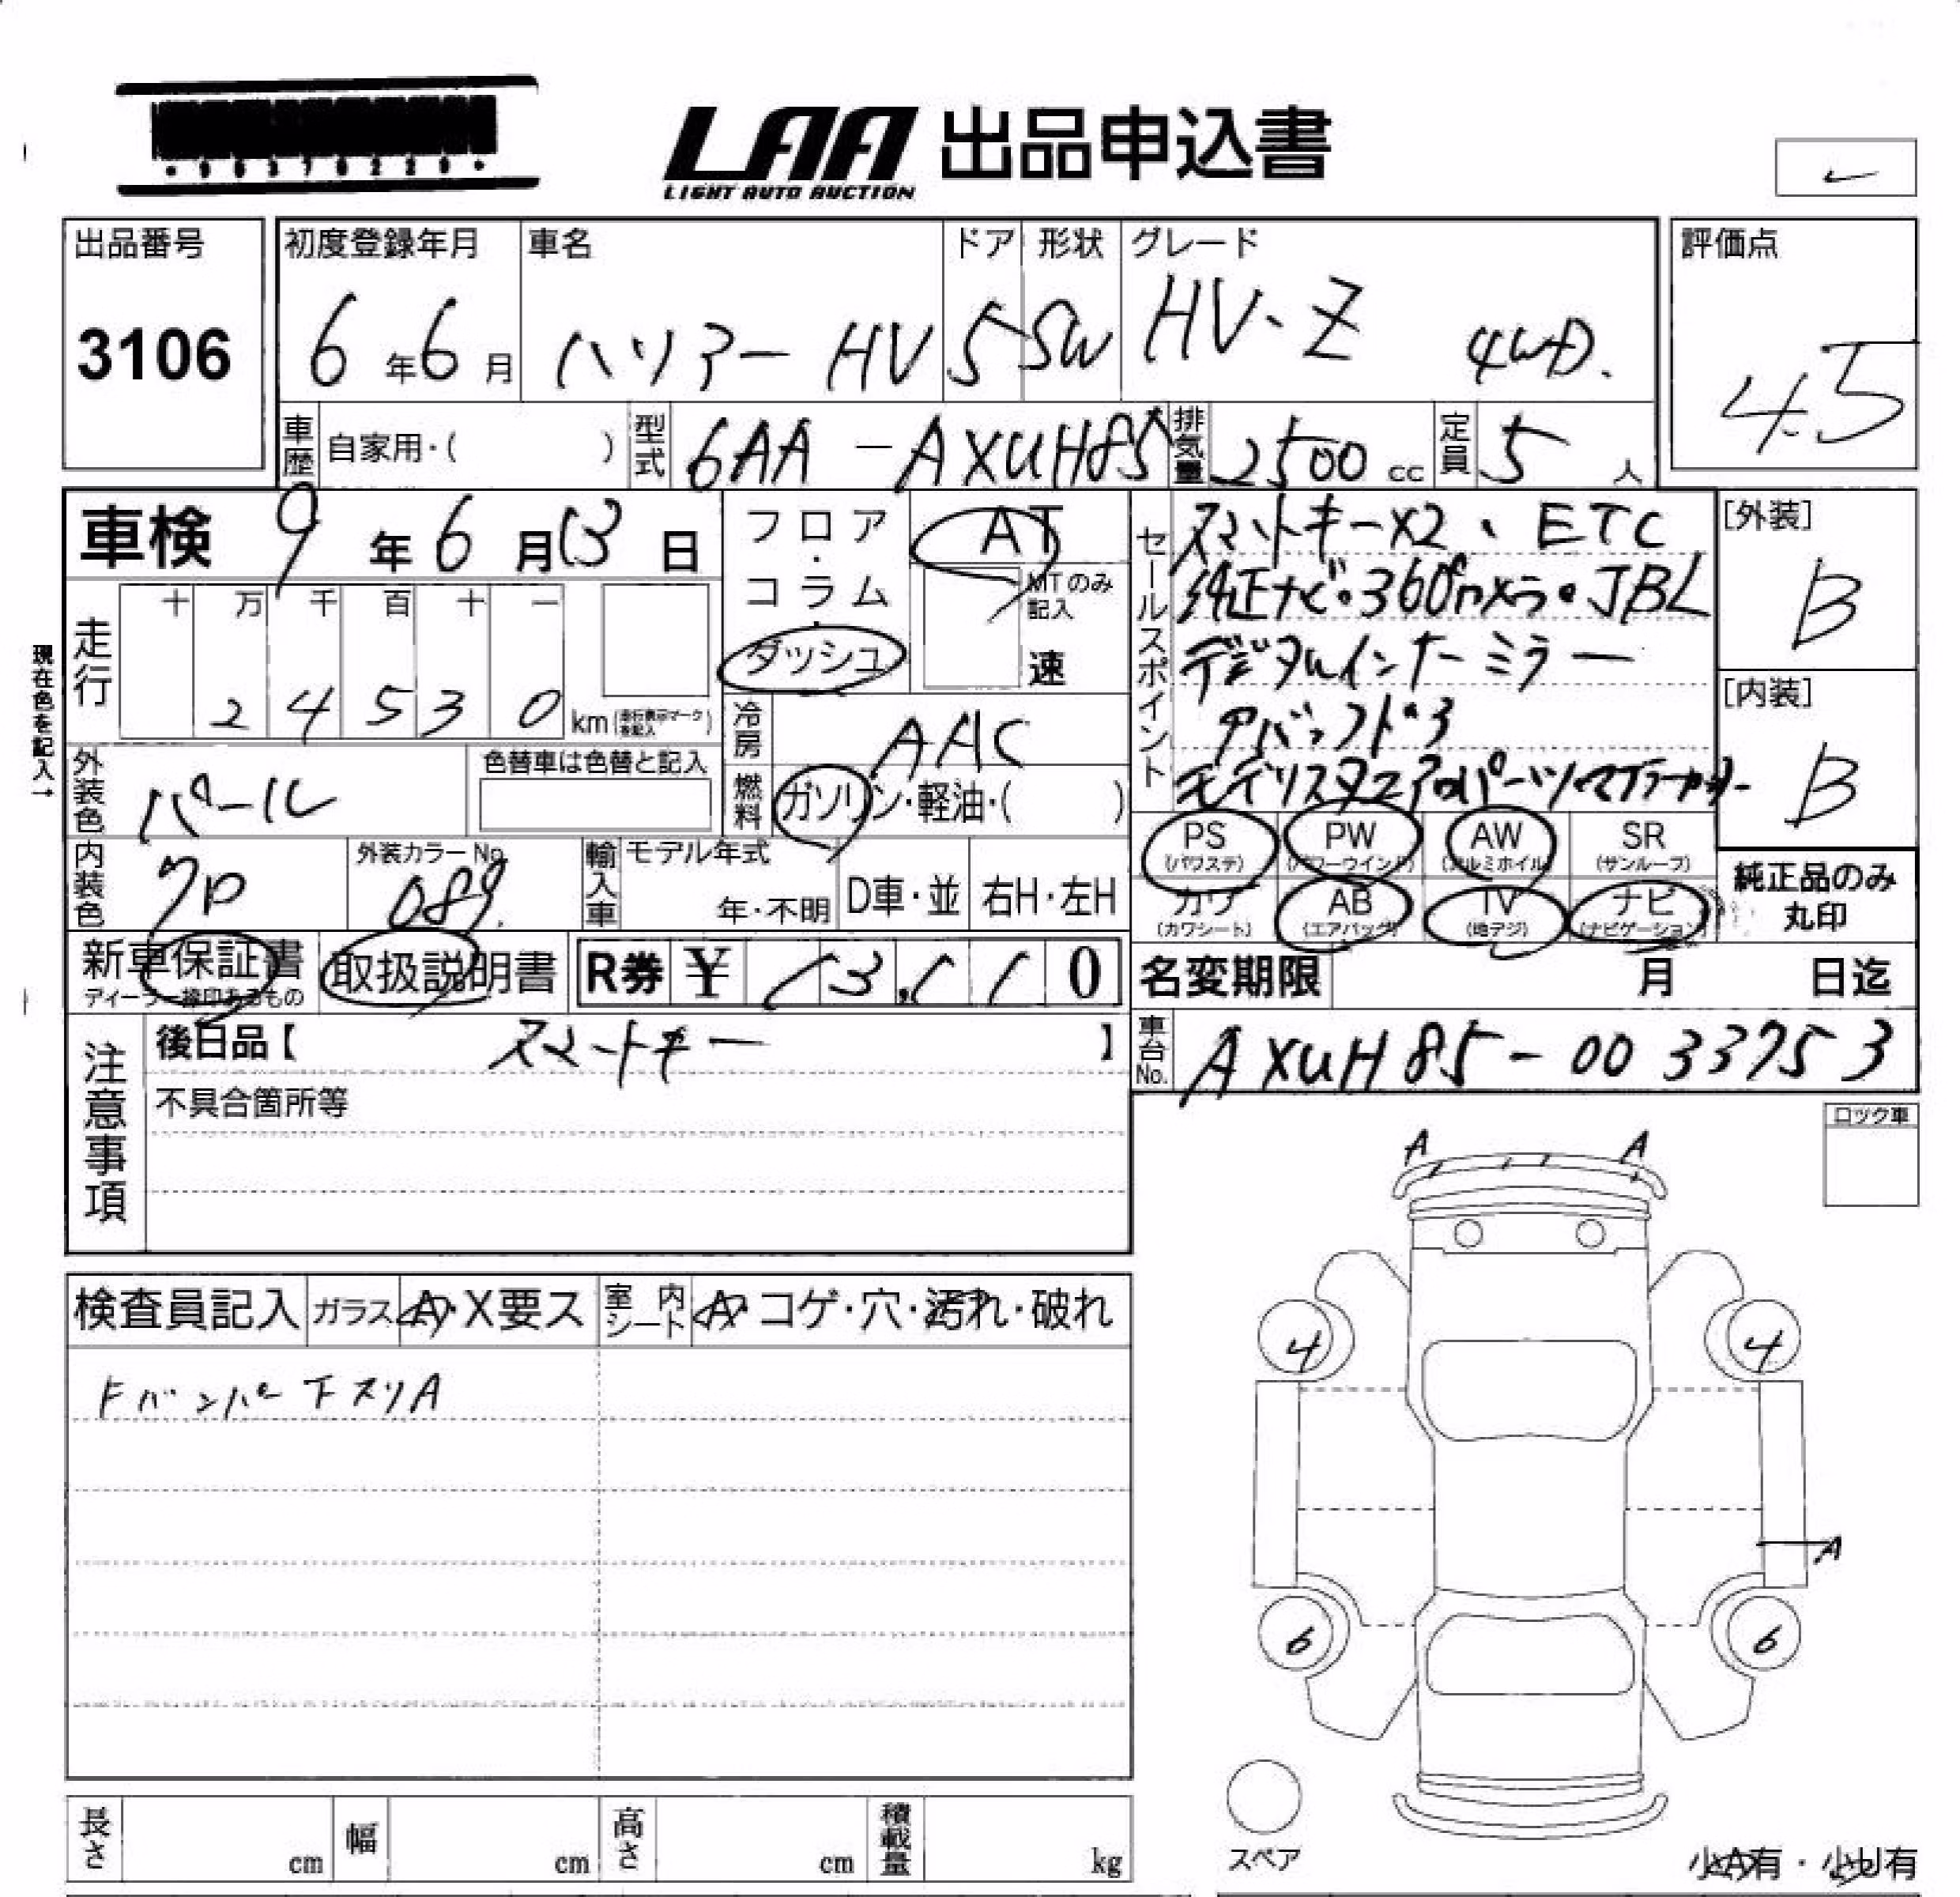 LAA 出品申込書
LIGHT AUTO AUCTION
出品番号
3106
初度登録年月
6年6月
車名
ハリアー HV
ドア
5
形状
SW
グレード
HV・Z 4WD.
評価点
4.5
車歴 自家用・( )
型式 6AA-AXUH85
排気量 2500cc
定員 5人
車検 9年6月13日
フロア・コラム・ダッシュ
AT
MTのみ記入
速
セールスポイント
スマートキーX2、ETC
純正ナビ・360°カメラ・JBL
デジタルインナーミラー
[外装]
B
[内装]
B
現在色を記入→
走行
十 万 千 百 十 一
2 4 5 3 0 km(走行表示マークを記入)
冷房 AAC
燃料 ガソリン・軽油・( )
外装色 パール
色替車は色替と記入
内装色 クロ
外装カラーNo. 089.
輸入車 モデル年式
年・不明
D車・並
右H・左H
PS (パワステ)
PW (パワーウインド)
AW (アルミホイル)
SR (サンルーフ)
カワ (カワシート)
AB (エアバッグ)
TV (地デジ)
ナビ (ナビゲーション)
純正品のみ
丸印
新車保証書
ディーラー捺印あるもの
取扱説明書
R券 ¥ 13,110
名変期限 月 日迄
注意事項
後日品【 スマートキー 】
不具合箇所等
車台No. AXUH85-0033753
ロック車
検査員記入
ガラス A・X要ス
室内シート A・コゲ・穴・汚れ・破れ
Fバンパー下スリA
A A
4 4
A
6 6
スペア
長さ cm
幅 cm
高さ cm
積載量 kg
少A有・少U有